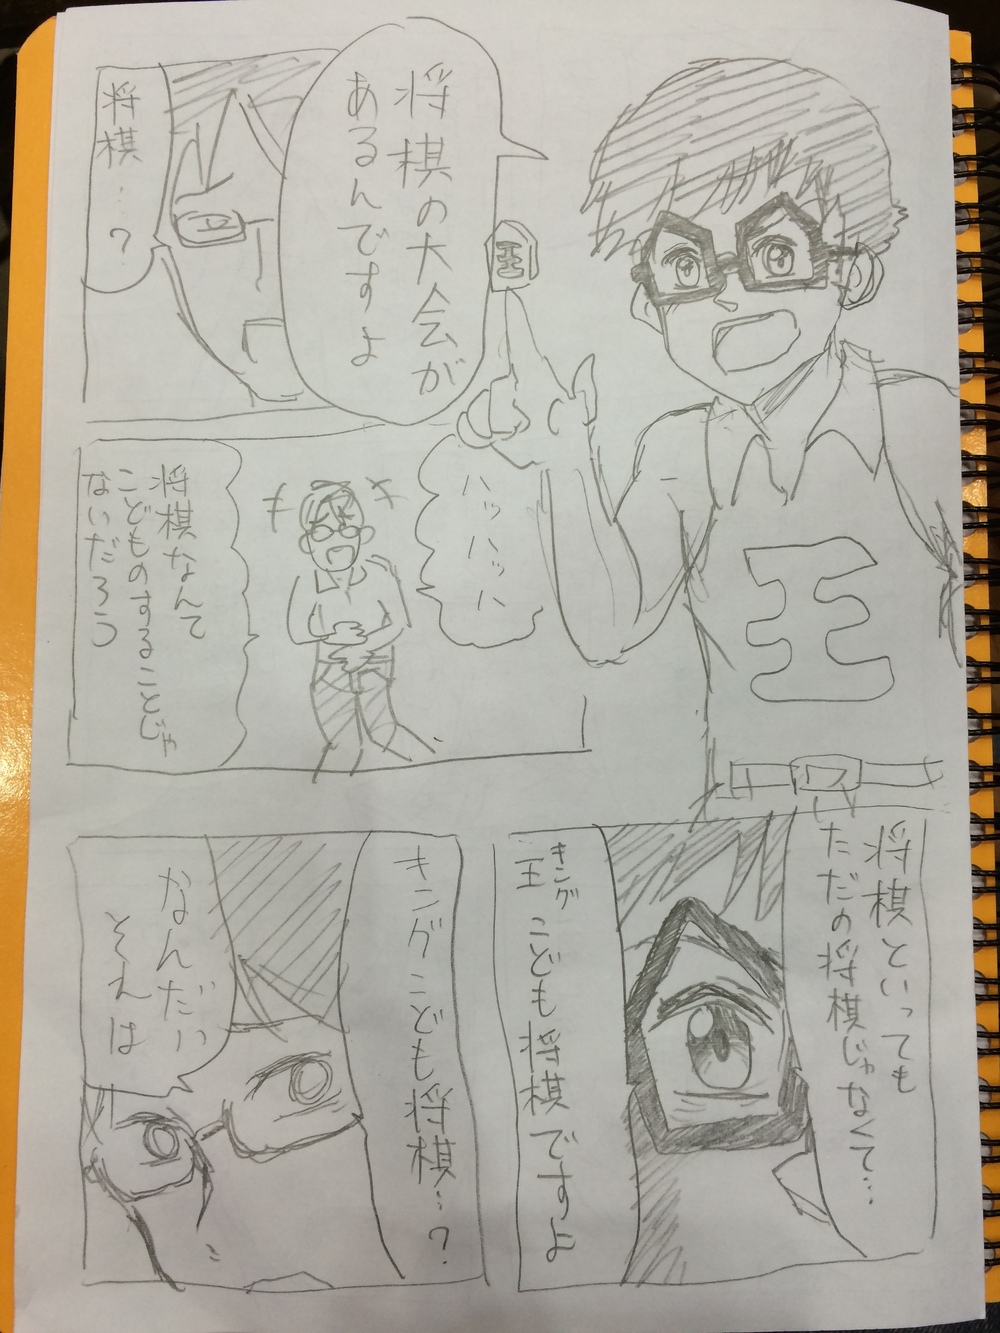 将棋の大会が
あるんですよ
王
王
将棋…?
ハッハッハ
将棋なんて
こどものすることじゃ
ないだろう
将棋といっても
ただの将棋じゃなくて…
キング
王こども将棋ですよ
キングこども将棋…?
なんだい
それは